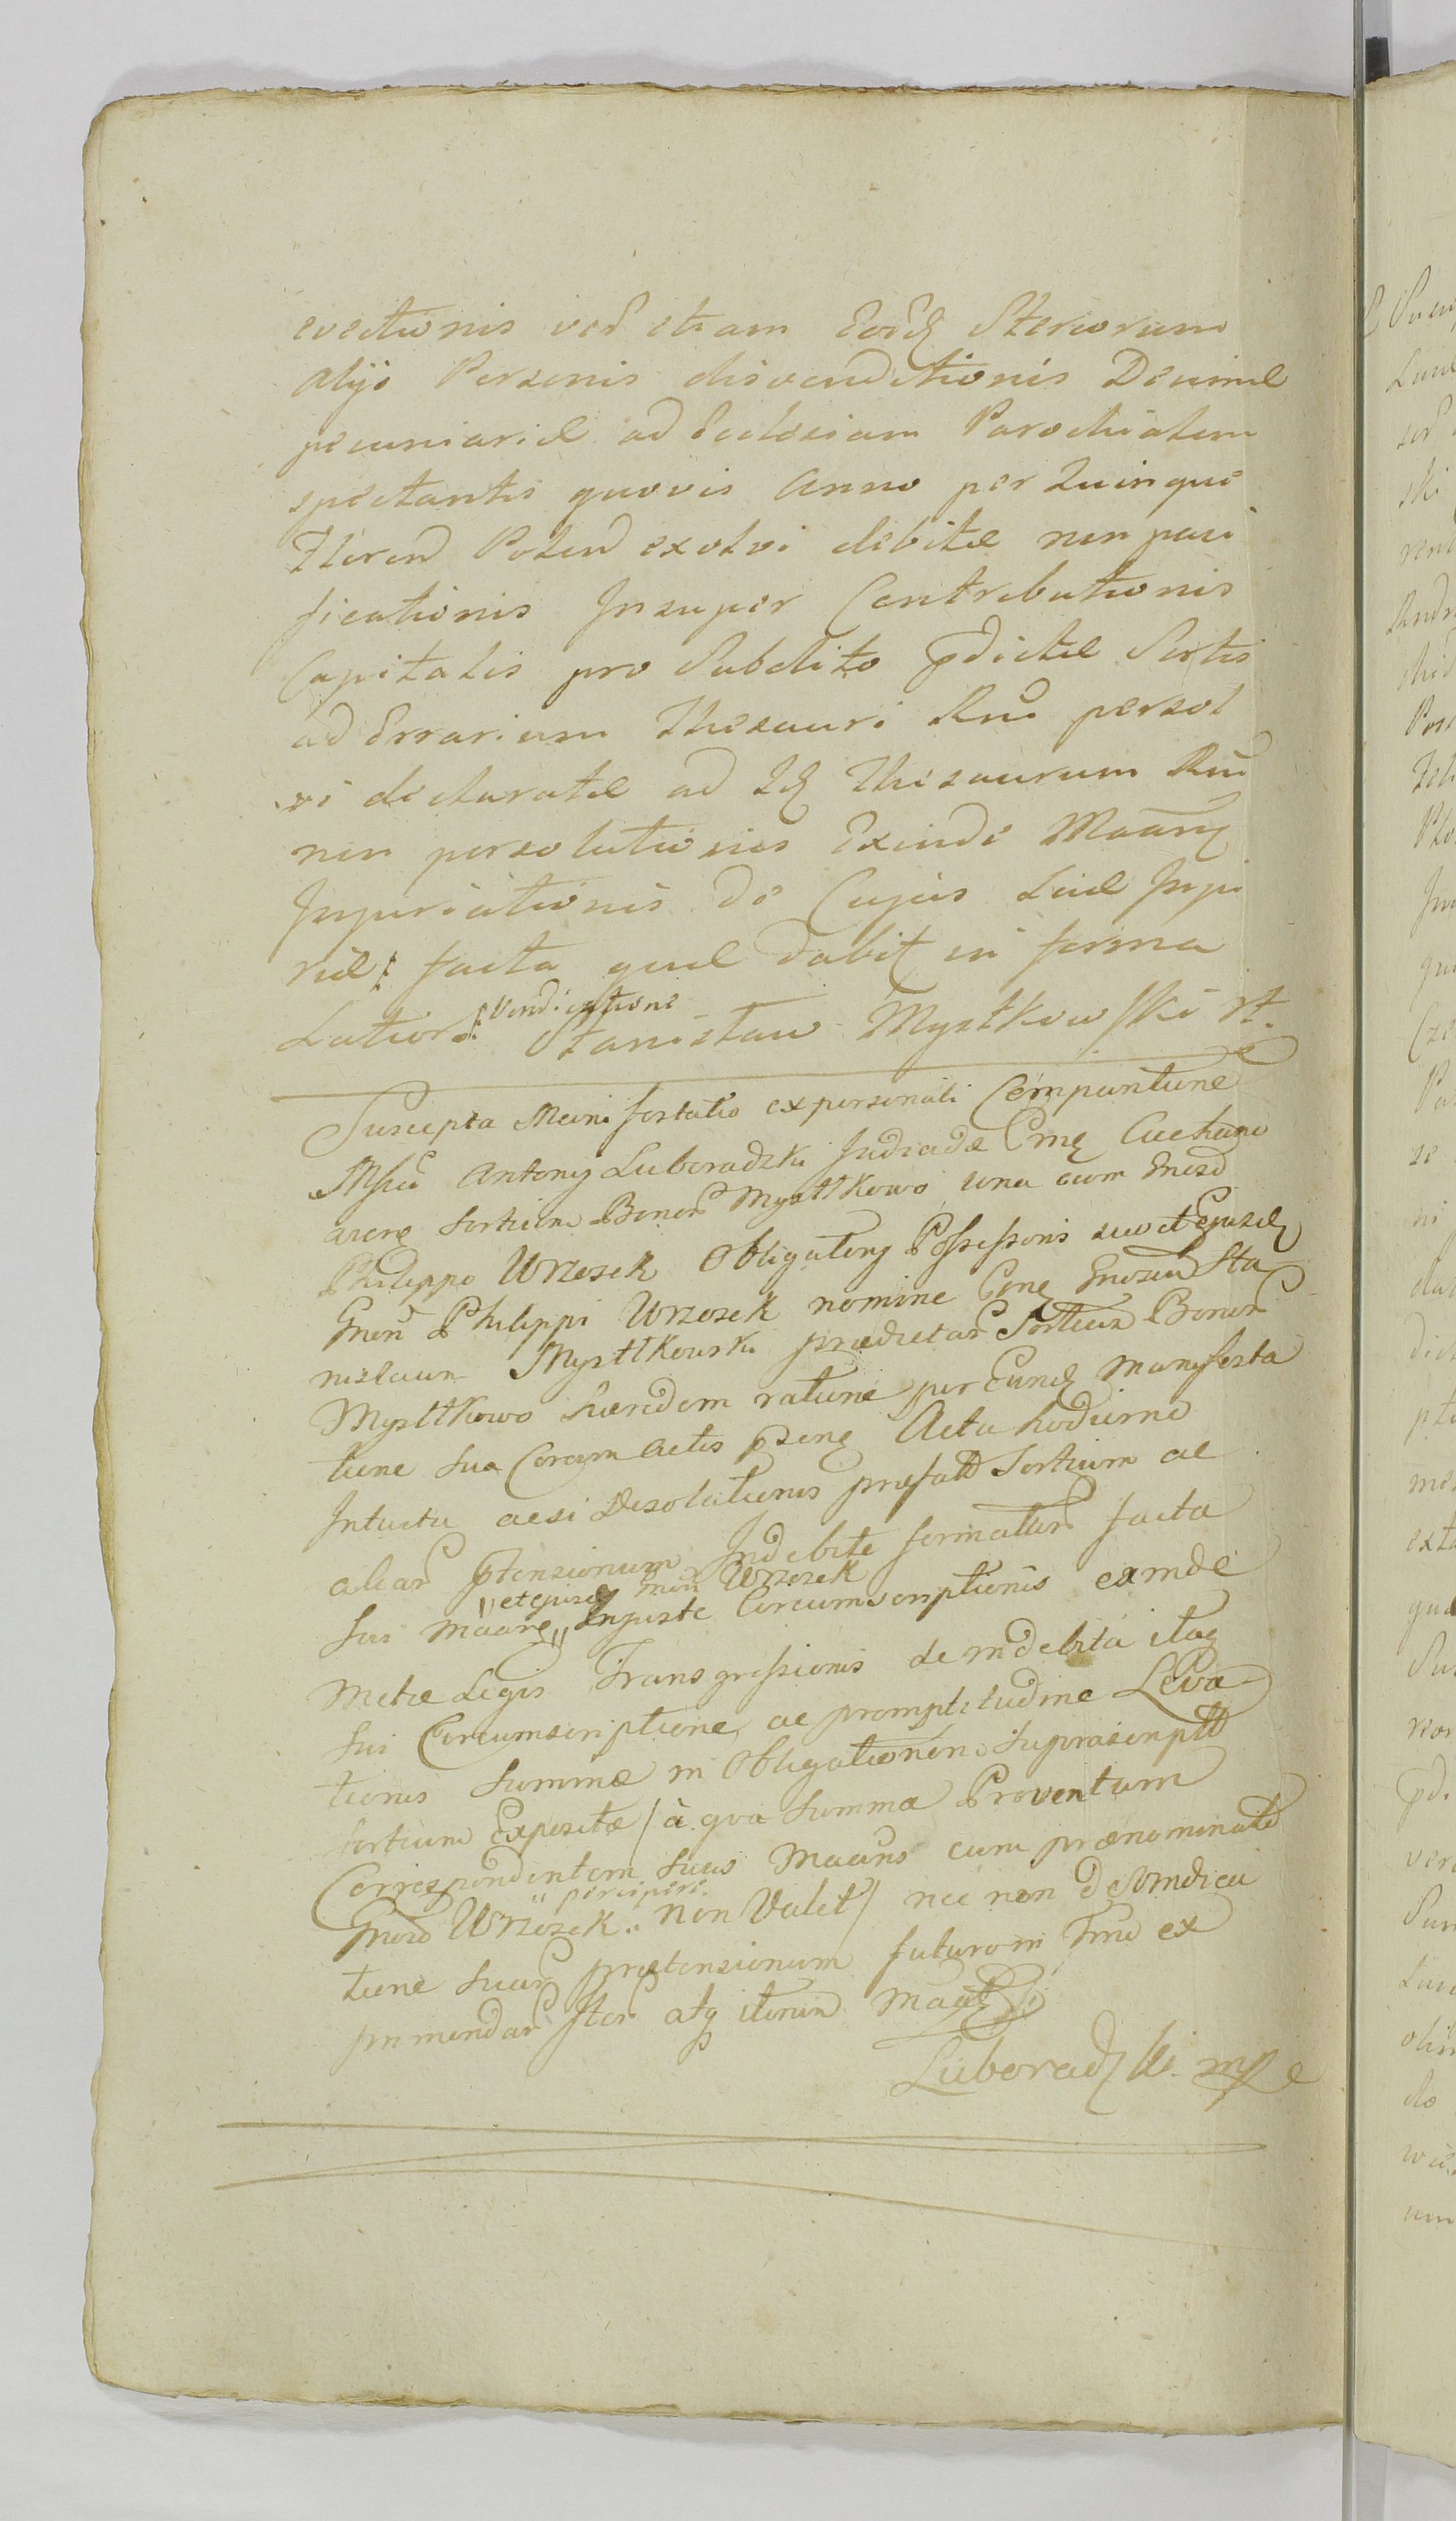 evectionis vel etiam Eord Stercorum
alijs Personis divenditionis Decimæ
pecuniariæ ad Ecclesiam Parochialem
spectantis quovis Anno per Quinque
Floren Polon exolvi debitæ non paci
ficationis Insuper Contributionis
Capitalis pro Subdito pdictæ Sortis
ad Errarium Thesauri Rni persol
vi declaratæ ad Id Thesaurum Rni
non persolutionis Exinde Maanq
Injuriationis de Cujus Suæ Inju
riæ facta quæ dabit in forma
Latiori vendicatione Stanisław Mystkowski rt.
Suscepta Manifestatio ex personali Comparitione
Mfici Antonij Luboradzki Judicidæ Cmq Ciechano
viens Sortium Bonor Mysttkowo una cum Gneso
Philippo Wrzosek Obligatorij Possessoris suo et Ejusd
Gnen Philippi Wrzosek nomine Conq Gnesum Sta
nislaum Mysttkowski prædictar Sortium Bonor
Mysttkowo hæredem ratione per Eund Manifesta
tione sua Coram Actis psenq Acta hodierno
Intuitu acsi Desolationis præfatt Sortium ac
aliar ptensionum Indebite formatar facta
et ejusd Gnen Wrzosek
sui Maanq Injuste Circumscriptionis eamde
Metæ Legis Transgressionis de indebita itaq
sui Circumscriptione ac promptitudine Leva
tionis Summæ in Obligationem suprascriptt
Sortium Expositæ / à qua Summa Proventum
Correspondentem suus Maans cum prænominato
percipere
Gneso Wrzosek non Valet / nec non de vindica
tione suar prætensionum futuro in Fno ex
primendar Iter atq iterum Maat
Luboradzki mpe